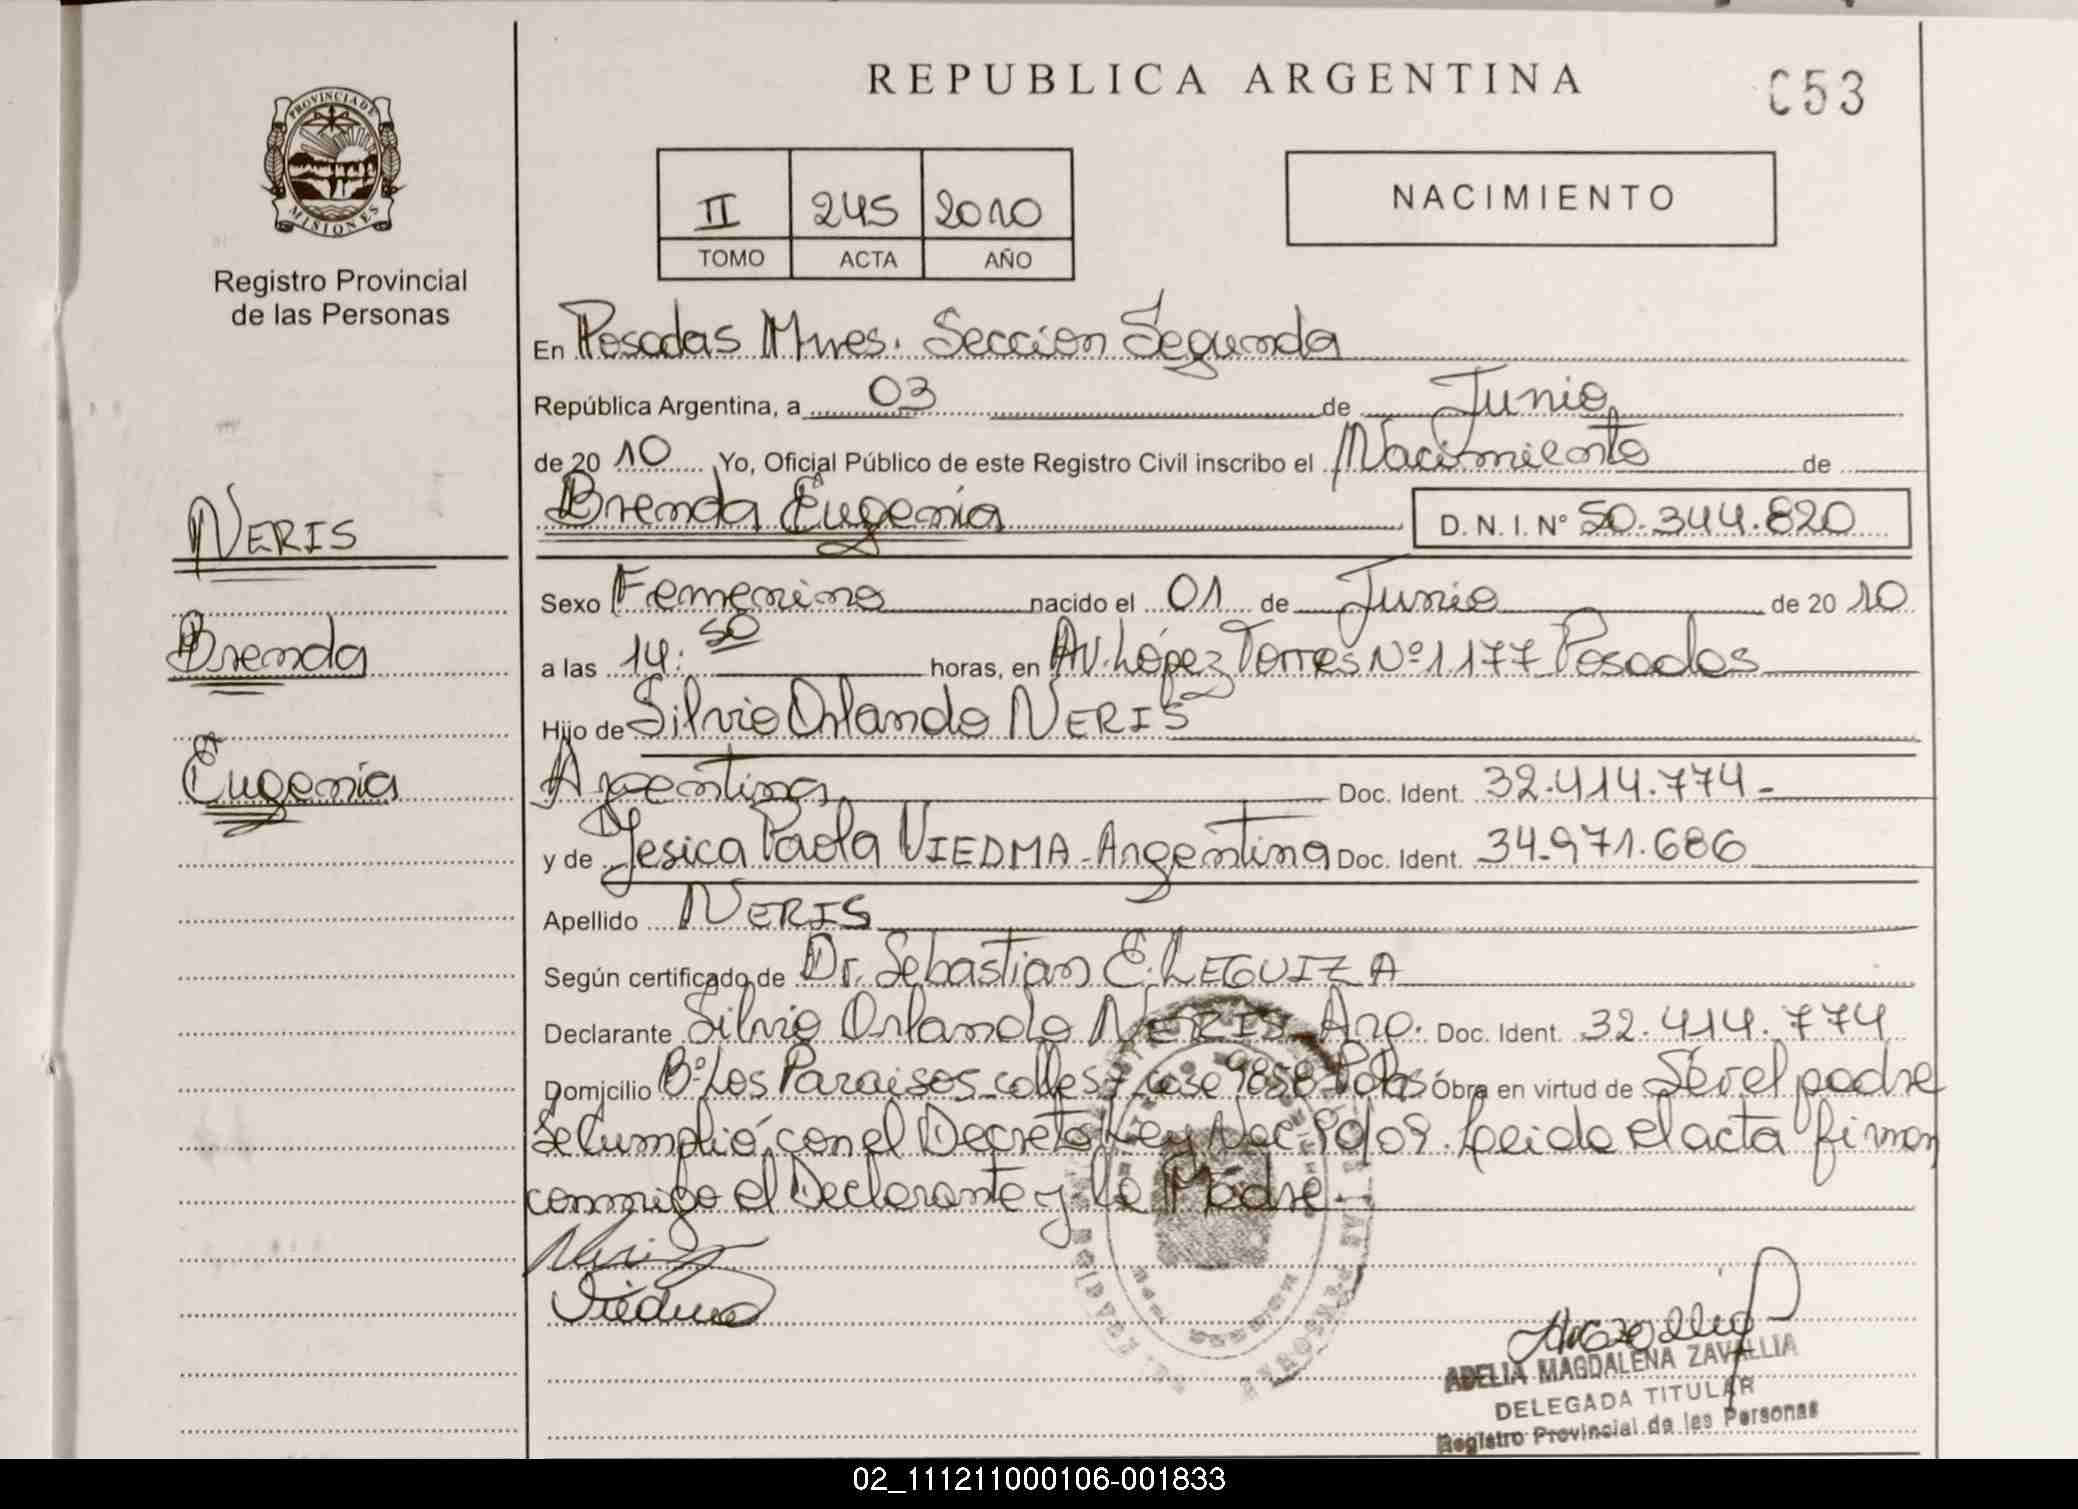 REPUBLICA ARGENTINA
C53
PROVINCIA DE
MISIONES
Registro Provincial
de las Personas
II 245 2010
TOMO ACTA AÑO
NACIMIENTO
En Posadas Mnes. Seccion Segunda
República Argentina, a 03 de Junio
de 2010 Yo, Oficial Público de este Registro Civil inscribo el Nacimiento de
Brenda Eugenia D. N. I. Nº 50.344.820
NERIS
Brenda
Eugenia
Sexo Femenino nacido el 01 de Junio de 2010
a las 14:50 horas, en Av. López Torres Nº 1177 Posadas
Hijo de Silvio Orlando NERIS
Argentina Doc. Ident. 32.414.774-
y de Jesica Paola VIEDMA-Argentina Doc. Ident. 34.971.686
Apellido NERIS
Según certificado de Dr. Sebastian E. LEGUIZA
Declarante Silvio Orlando NERIS Arg. Doc. Ident. 32.414.774
Domicilio Bº Los Paraisos calle 57 case 9858 Pdas Obra en virtud de Ser el padre
Se Cumplió con el Decreto Ley Nac 90/09. Leida el acta firman
conmigo el Declarante y la Madre
Neris
Viedma
ADELIA MAGDALENA ZAVALLIA
DELEGADA TITULAR
Registro Provincial de las Personas
02_111211000106-001833